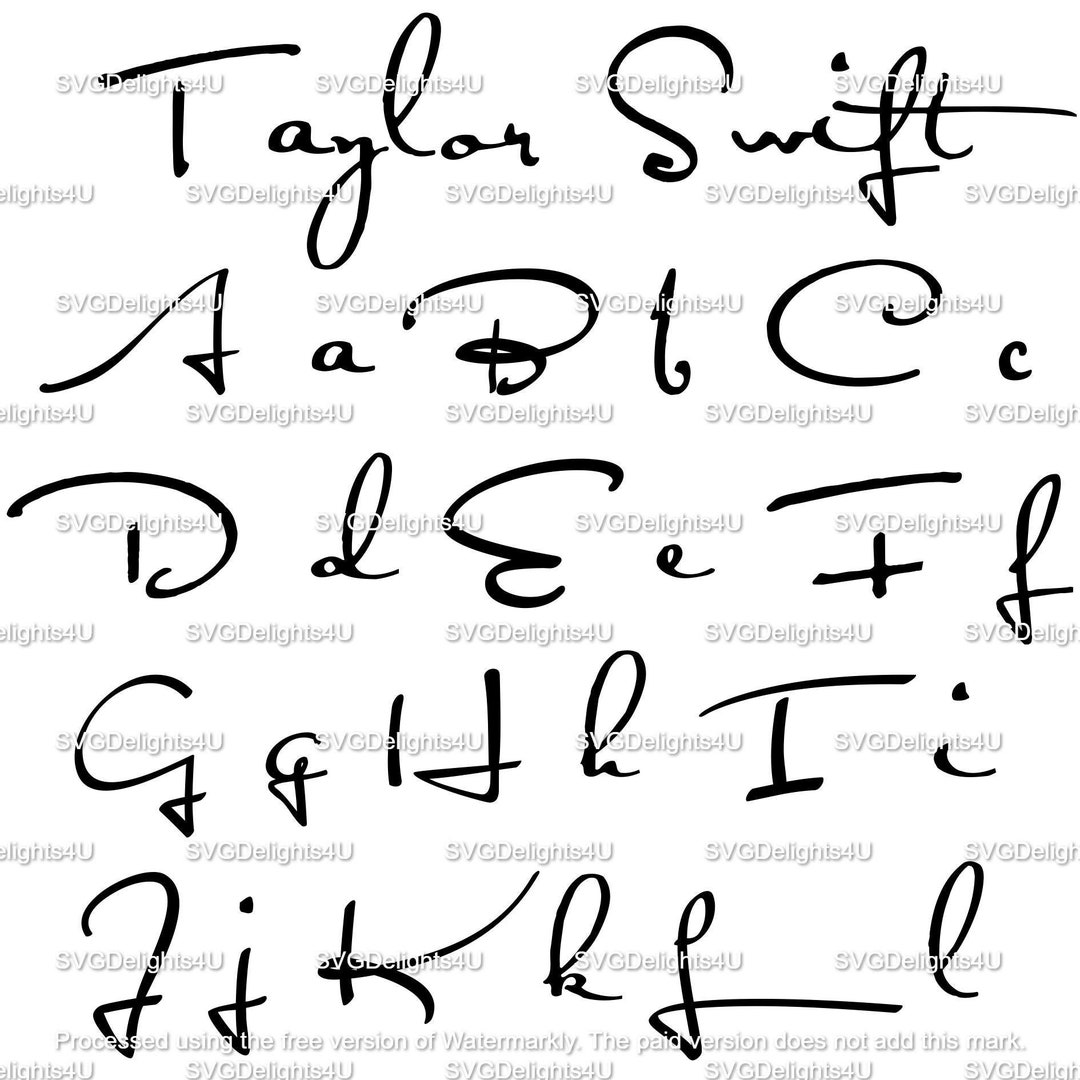 Taylor Swift
SVGDelights4U SVGDelights4U SVGDelights4U SVGDelights4U
elights4U SVGDelights4U SVGDelights4U SVGDelights4U SVGDeligh
A a B b C c
SVGDelights4U SVGDelights4U SVGDelights4U SVGDelights4U
elights4U SVGDelights4U SVGDelights4U SVGDelights4U SVGDeligh
D d E e F f
SVGDelights4U SVGDelights4U SVGDelights4U SVGDelights4U
elights4U SVGDelights4U SVGDelights4U SVGDelights4U SVGDeligh
G g H h I i
SVGDelights4U SVGDelights4U SVGDelights4U SVGDelights4U
elights4U SVGDelights4U SVGDelights4U SVGDelights4U SVGDeligh
J j K k L l
SVGDelights4U SVGDelights4U SVGDelights4U SVGDelights4U
Processed using the free version of Watermarkly. The paid version does not add this mark.
elights4U SVGDelights4U SVGDelights4U SVGDelights4U SVGDeligh